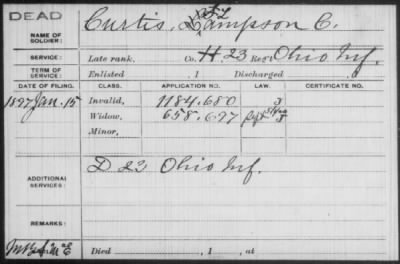 DEAD
NAME OF SOLDIER: Curtis, Sampson C.
SERVICE: Late rank, Co. H, 23 Reg't Ohio Inf.
TERM OF SERVICE: Enlisted , 1 Discharged
DATE OF FILING. CLASS. APPLICATION NO. LAW. CERTIFICATE NO.
1897 Jan. 15 Invalid, 1184.680
Widow, 658.697
Minor,
ADDITIONAL SERVICES: D 23 Ohio Inf.
REMARKS:
Died , 1 , at